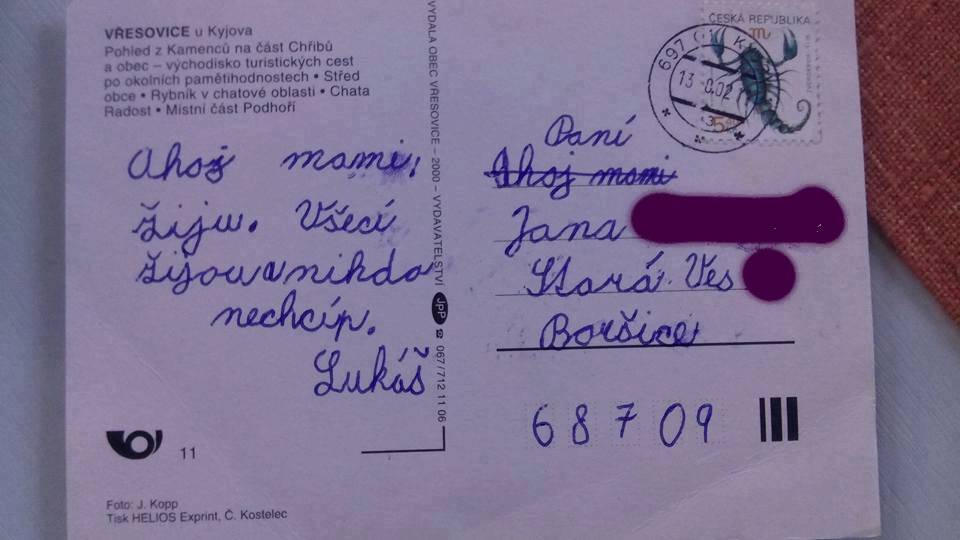 VŘESOVICE u Kyjova
Pohled z Kamenců na část Chřibů
a obec – východisko turistických cest
po okolních pamětihodnostech • Střed
obce • Rybník v chatové oblasti • Chata
Radost • Místní část Podhoří
Ahoj mami,
žiju. Všecí
žijou a nikdo
nechcíp.
Lukáš
11
Foto: J. Kopp
Tisk HELIOS Exprint, Č. Kostelec
VYDALA OBEC VŘESOVICE – 2000 – VYDAVATELSTVÍ JPP ☎ 067/712 11 06
ČESKÁ REPUBLIKA
697 01
13
02
Paní
Ahoj mami
Jana
Stará Ves
Boršice
687 09